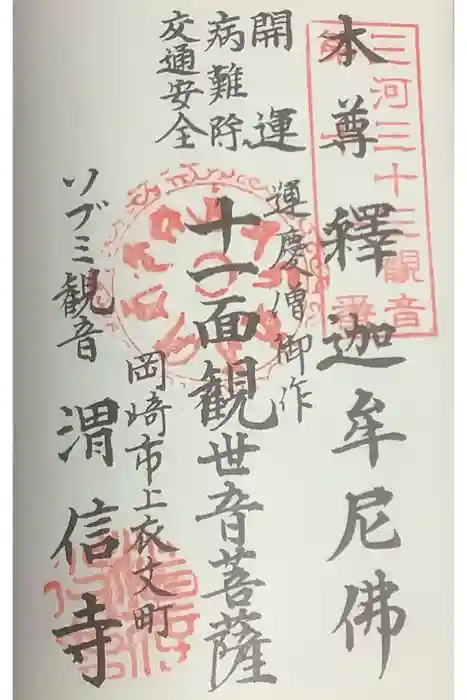 三河三十三観音
第 番
本尊 釋迦牟尼佛
開運
病難除
交通安全
運慶僧御作
十一面観世音菩薩
岡崎市上衣文町
ソブミ観音
渭信寺